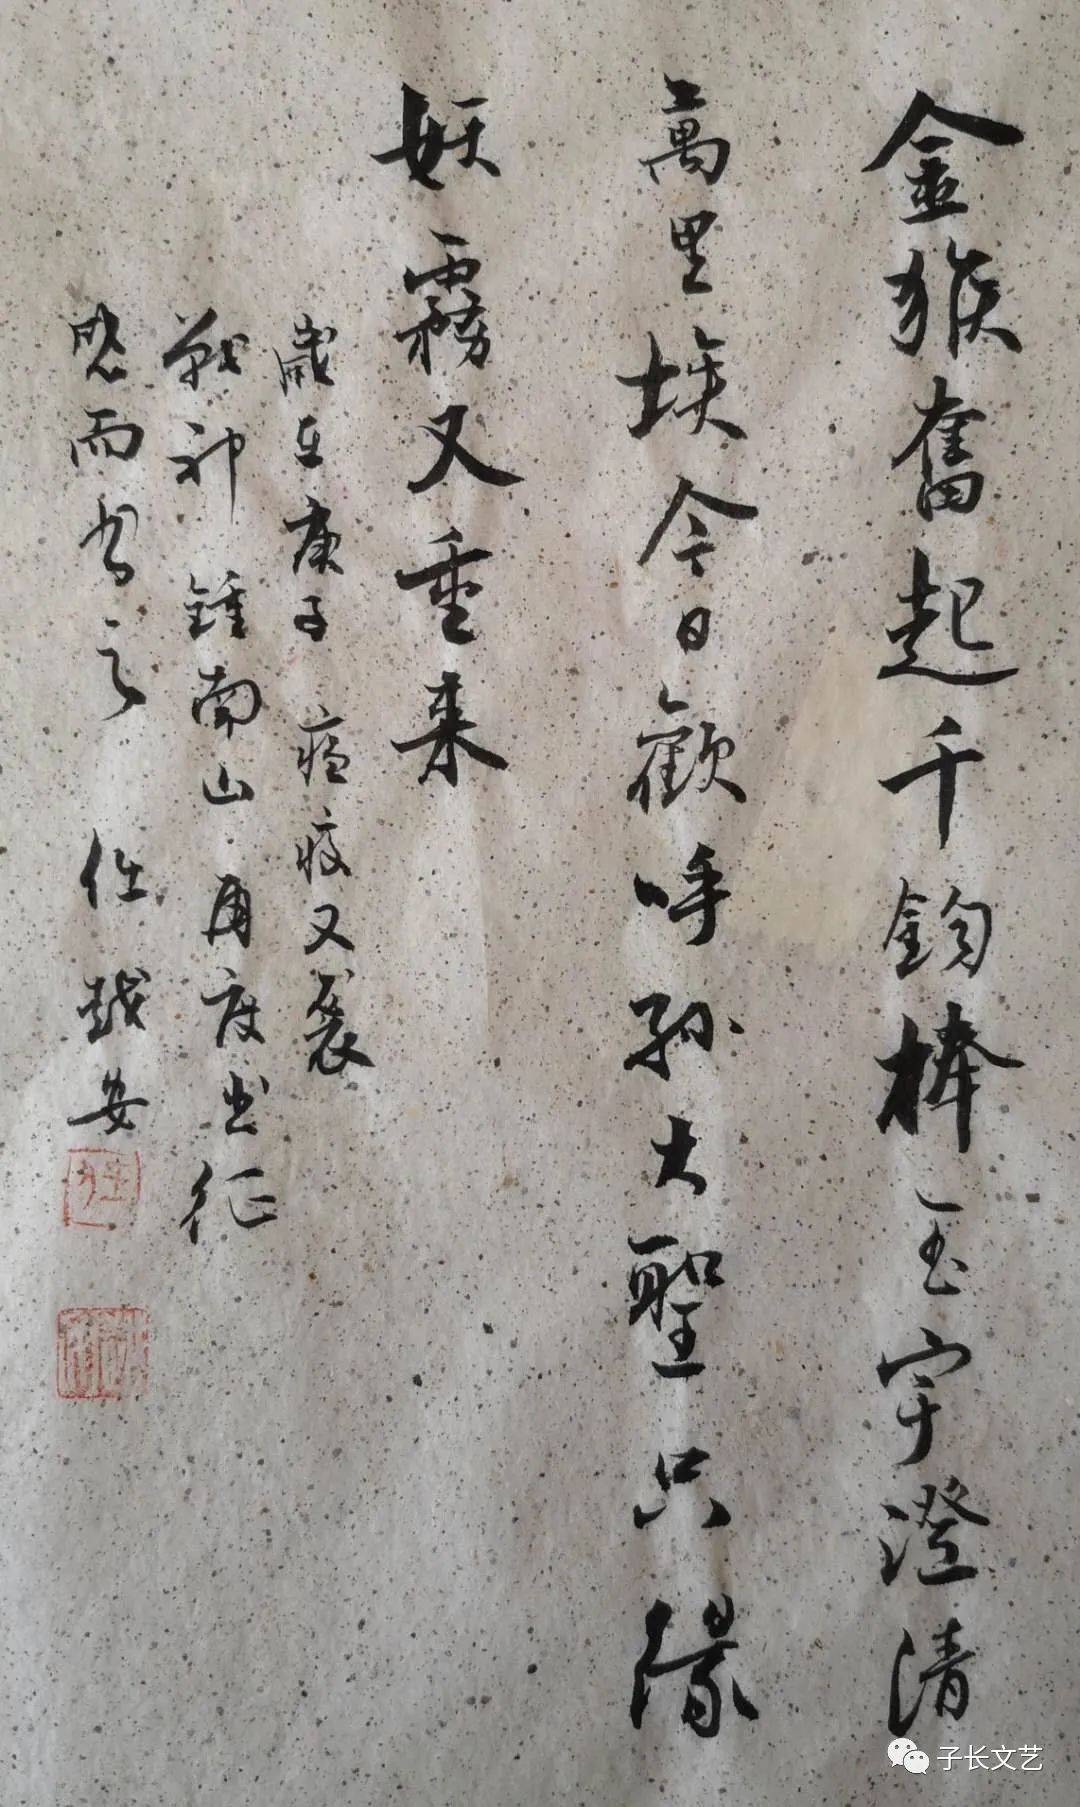 金猴奮起千鈞棒玉宇澄清
萬里埃今日歡呼孫大聖只緣
妖霧又重来
歲在庚子 瘟疫又襲
戰神 鍾南山再度出征
感而书之 任越安
子长文艺